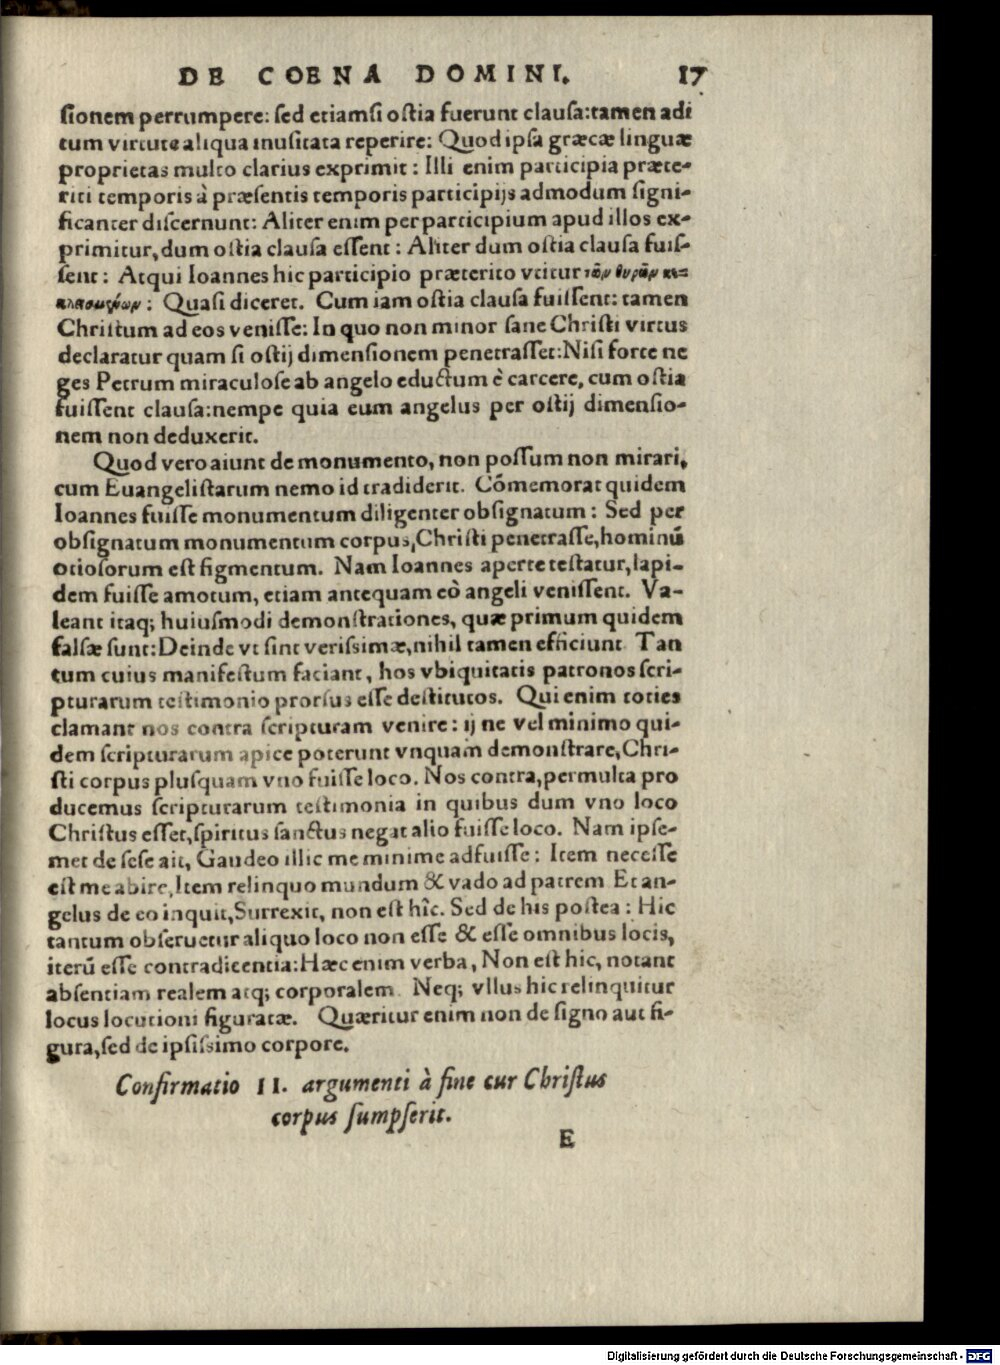 DE COENA DOMINI. 17
sionem perrumpere: sed etiamsi ostia fuerunt clausa: tamen adi
tum virtute aliqua inusitata reperire: Quod ipsa græcæ linguæ
proprietas multo clarius exprimit: Illi enim participia præte-
riti temporis à præsentis temporis participijs admodum signi-
ficanter discernunt: Aliter enim per participium apud illos ex-
primitur, dum ostia clausa essent: Aliter dum ostia clausa fuis-
sent: Atqui Ioannes hic participio præterito vtitur τῶν θυρῶν κε=
κλεισμένων: Quasi diceret. Cum iam ostia clausa fuissent: tamen
Christum ad eos venisse: In quo non minor sane Christi virtus
declaratur quam si ostij dimensionem penetrasset: Nisi forte ne
ges Petrum miraculose ab angelo eductum è carcere, cum ostia
fuissent clausa: nempe quia eum angelus per ostij dimensio-
nem non deduxerit.
Quod vero aiunt de monumento, non possum non mirari,
cum Euangelistarum nemo id tradiderit. Cōmemorat quidem
Ioannes fuisse monumentum diligenter obsignatum: Sed per
obsignatum monumentum corpus, Christi penetrasse, hominū
otiosorum est figmentum. Nam Ioannes aperte testatur, lapi-
dem fuisse amotum, etiam antequam eò angeli venissent. Va-
leant itaq; huiusmodi demonstrationes, quæ primum quidem
falsæ sunt: Deinde vt sint verissimæ, nihil tamen efficiunt Tan
tum cuius manifestum faciant, hos vbiquitatis patronos scri-
pturarum testimonio prorsus esse destitutos. Qui enim toties
clamant nos contra scripturam venire: ij ne vel minimo qui-
dem scripturarum apice poterunt vnquam demonstrare, Chri-
sti corpus plusquam vno fuisse loco. Nos contra, permulta pro
ducemus scripturarum testimonia in quibus dum vno loco
Christus esset, spiritus sanctus negat alio fuisse loco. Nam ipse-
met de sese ait, Gaudeo illic me minime adfuisse: Item necesse
est me abire, Item relinquo mundum & vado ad patrem Et an-
gelus de eo inquit, Surrexit, non est hîc. Sed de his postea: Hic
tantum obseruetur aliquo loco non esse & esse omnibus locis,
iterū esse contradicentia: Hæc enim verba, Non est hic, notant
absentiam realem atq; corporalem. Neq; vllus hic relinquitur
locus locutioni figuratæ. Quæritur enim non de signo aut fi-
gura, sed de ipsissimo corpore.
Confirmatio II. argumenti à fine cur Christus
corpus sumpserit.
E
Digitalisierung gefördert durch die Deutsche Forschungsgemeinschaft - DFG